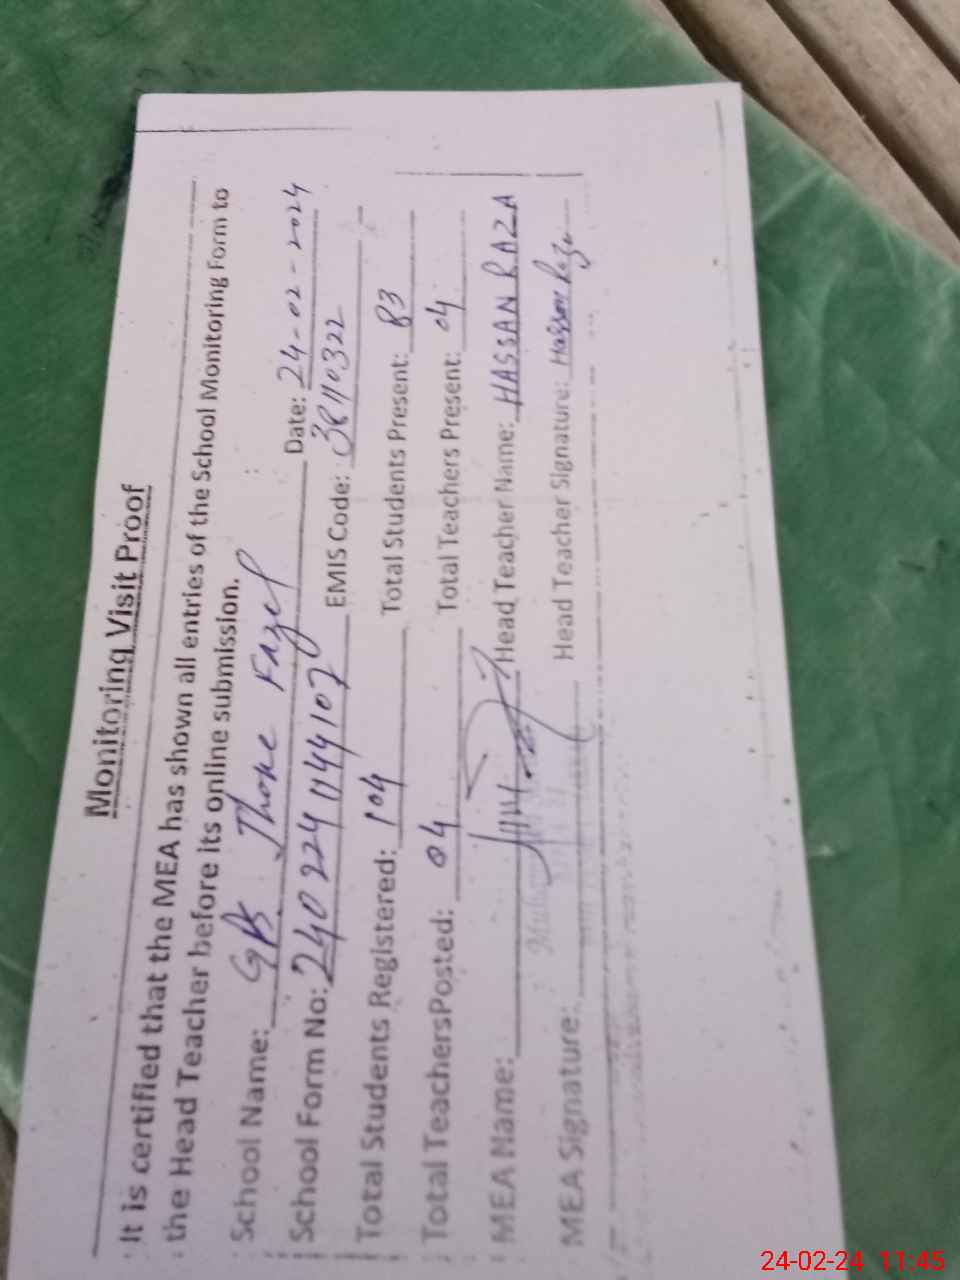 Monitoring Visit Proof
It is certified that the MEA has shown all entries of the School Monitoring Form to
the Head Teacher before its online submission.
School Name: GPS Jhoke Fazel Date: 24-02-2024
School Form No: 240224114107 EMIS Code: 38110322
Total Students Registered: 104 Total Students Present: 83
Total TeachersPosted: 04 Total Teachers Present: 04
MEA Name: Head Teacher Name: HASSAN RAZA
MEA Signature: Head Teacher Signature: Hassan Raza
24-02-24 11:45